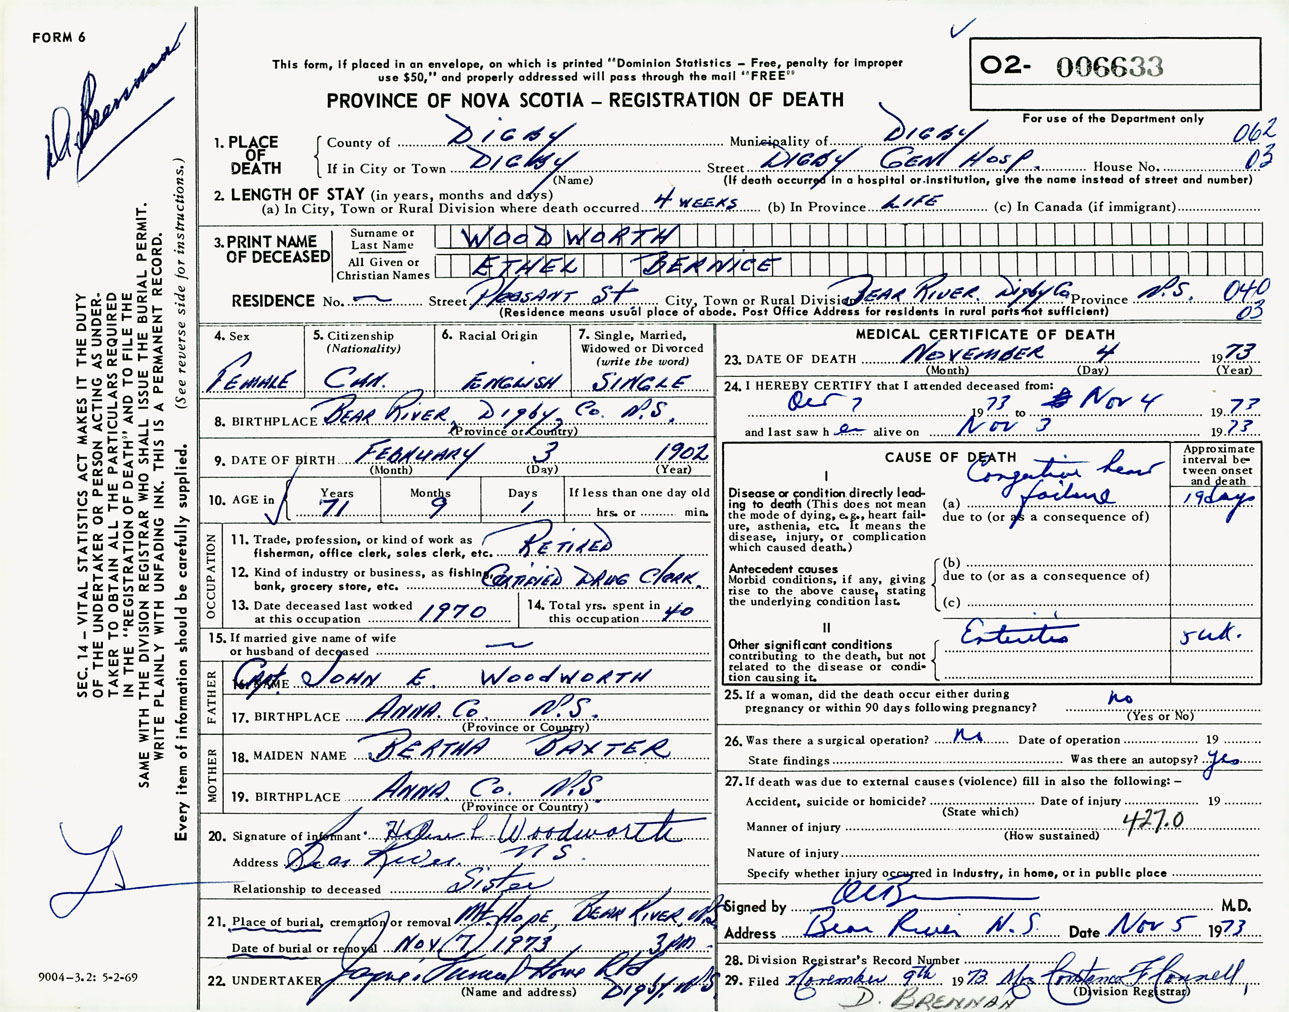 FORM 6
D. Brennan
This form, if placed in an envelope, on which is printed "Dominion Statistics – Free, penalty for improper
use $50," and properly addressed will pass through the mail "FREE"
PROVINCE OF NOVA SCOTIA – REGISTRATION OF DEATH
O2- 006633
For use of the Department only
SEC. 14 – VITAL STATISTICS ACT MAKES IT THE DUTY
OF THE UNDERTAKER OR PERSON ACTING AS UNDER-
TAKER TO OBTAIN ALL THE PARTICULARS REQUIRED
IN THE "REGISTRATION OF DEATH" AND TO FILE THE
SAME WITH THE DIVISION REGISTRAR WHO SHALL ISSUE THE BURIAL PERMIT.
WRITE PLAINLY WITH UNFADING INK. THIS IS A PERMANENT RECORD.
Every item of information should be carefully supplied. (See reverse side for instructions.)
1. PLACE OF DEATH
County of DIGBY Municipality of DIGBY 062
If in City or Town DIGBY Street DIGBY GEN HOSP. House No. 03
(Name) (If death occurred in a hospital or institution, give the name instead of street and number)
2. LENGTH OF STAY (in years, months and days)
(a) In City, Town or Rural Division where death occurred 4 WEEKS (b) In Province LIFE (c) In Canada (if immigrant)
3. PRINT NAME OF DECEASED
Surname or Last Name WOODWORTH
All Given or Christian Names ETHEL BERNICE
RESIDENCE No. — Street PLEASANT ST City, Town or Rural Division BEAR RIVER. Digby Co Province N.S. 040
(Residence means usual place of abode. Post Office Address for residents in rural parts not sufficient) 03
4. Sex
FEMALE
5. Citizenship
(Nationality)
CAN.
6. Racial Origin
ENGLISH
7. Single, Married,
Widowed or Divorced
(write the word)
SINGLE
8. BIRTHPLACE BEAR RIVER, Digby Co. N.S.
(Province or Country)
9. DATE OF BIRTH FEBRUARY 3 1902
(Month) (Day) (Year)
10. AGE in Years Months Days If less than one day old
71 9 1 hrs. or min.
OCCUPATION
11. Trade, profession, or kind of work as
fisherman, office clerk, sales clerk, etc. RETIRED
12. Kind of industry or business, as fishing,
bank, grocery store, etc. CERTIFIED DRUG CLERK.
13. Date deceased last worked
at this occupation 1970
14. Total yrs. spent in
this occupation 40
15. If married give name of wife
or husband of deceased —
FATHER
16. NAME Capt. JOHN E. WOODWORTH
17. BIRTHPLACE ANNA. Co. N.S.
(Province or Country)
MOTHER
18. MAIDEN NAME BERTHA BAXTER
19. BIRTHPLACE ANNA. Co. N.S.
(Province or Country)
20. Signature of informant Helen L Woodworth
Address Bear River N S.
Relationship to deceased Sister
21. Place of burial, cremation or removal Mt. HOPE, BEAR RIVER, N.S.
Date of burial or removal Nov 7, 1973 3 PM.
22. UNDERTAKER Jayne's Funeral Home Ltd
(Name and address) Digby. N.S.
9004–3.2: 5-2-69
MEDICAL CERTIFICATE OF DEATH
23. DATE OF DEATH NOVEMBER 4 1973
(Month) (Day) (Year)
24. I HEREBY CERTIFY that I attended deceased from:
Oct 7 1973 to Nov 4 1973
and last saw her alive on Nov 3 1973
CAUSE OF DEATH
Approximate
interval be-
tween onset
and death
I
Disease or condition directly lead-
ing to death (This does not mean
the mode of dying, e.g., heart fail-
ure, asthenia, etc. It means the
disease, injury, or complication
which caused death.)
(a) Congestive heart failure 19 days
due to (or as a consequence of)
Antecedent causes
Morbid conditions, if any, giving
rise to the above cause, stating
the underlying condition last.
(b)
due to (or as a consequence of)
(c)
II
Other significant conditions
contributing to the death, but not
related to the disease or condi-
tion causing it.
Enteritis 5 wk.
25. If a woman, did the death occur either during
pregnancy or within 90 days following pregnancy? no
(Yes or No)
26. Was there a surgical operation? no Date of operation 19
State findings Was there an autopsy? yes
27. If death was due to external causes (violence) fill in also the following: –
Accident, suicide or homicide? Date of injury 19
(State which)
Manner of injury 427.0
(How sustained)
Nature of injury
Specify whether injury occurred in industry, in home, or in public place
Signed by M.D.
Address Bear River N.S. Date Nov 5 1973
28. Division Registrar's Record Number
29. Filed November 9th 1973 Mrs Constance F. Connell
(Division Registrar)
D. BRENNAN